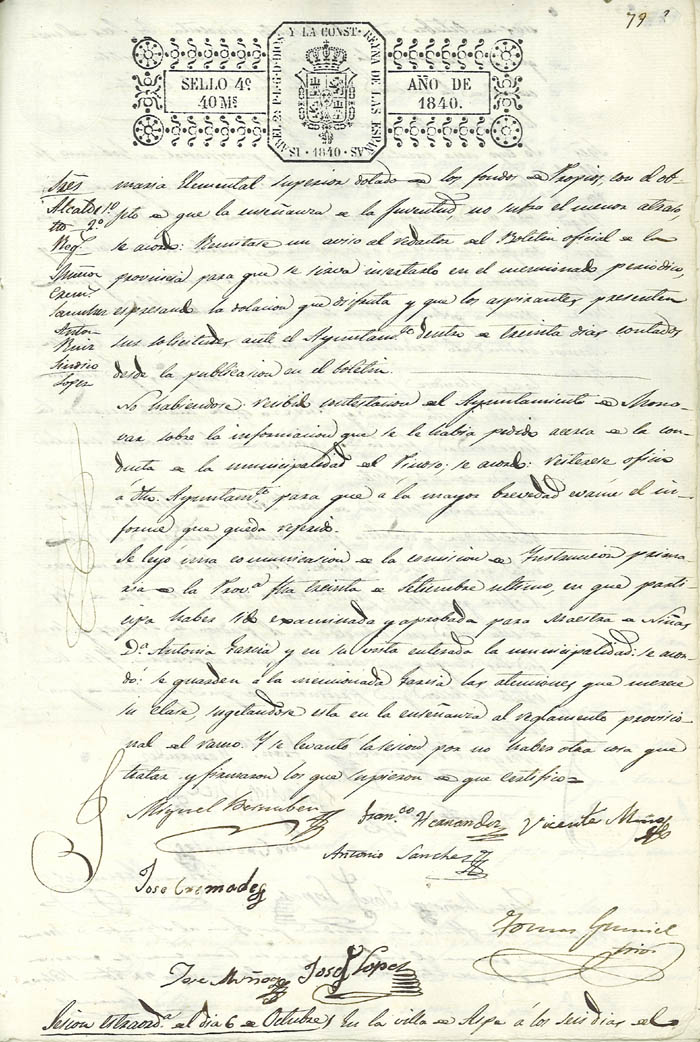 79
ISABEL 2ª P. L. G. D. DIOS Y LA CONST. REYNA DE LAS ESPAÑAS · 1840 ·
SELLO 4º
40 Mˢ
AÑO DE
1840.
Sres
Alcalde 1º
Ytto 2º
Reg.
Muñoz
Crem.
Sanchez
Anton
Ruiz
Sindico
Lopez
maria Elemental superior dotada de los fondos de Propios, con el ob-
jeto de que la enseñanza de la Juventud no sufra el menor atraso
se acordo: Remitase un aviso al redactor del Boletin oficial de la
provincia para que se sirva insertarlo en el mencionado periodico,
espresando la dotacion que disfruta y que los aspirantes presenten
sus solicitudes ante el Ayuntamᵗᵒ dentro de treinta dias contados
desde la publicacion en el boletin.
No habiendose recibido contestacion del Ayuntamiento de Mono-
var sobre la informacion que se le habia pedido acerca de la con-
ducta de la municipalidad del Pinoso; se acordo: reiterese oficio
á dho. Ayuntamᵗᵒ para que á la mayor brevedad evacue el in-
forme que queda referido.
Se leyó una comunicacion de la comision de Instruccion prima-
ria de la Provᵃ fha treinta de Setiembre ultimo, en que parti-
cipa haber sido examinada y aprobada para Maestra de Niñas
Dᵃ Antonia Garcia y en su vista enterada la municipalidad: se acor-
dó: se guarden á la mencionada Garcia las atenciones que merece
su clase, sugetandose esta en la enseñanza al reglamento provisio-
nal del ramo. Y se levanto la sesion por no haber otra cosa que
tratar y firmaron los que supieron de que certifico=
Miguel Bernabeu
Franᶜᵒ Hernandez
Vicente Muñoz
Antonio Sanchez
Jose Cremades
Jose Muñoz
Jose Lopez
Sesion estraordᵃ del dia 6 de Octubre
En la villa de Aspe á los seis dias del